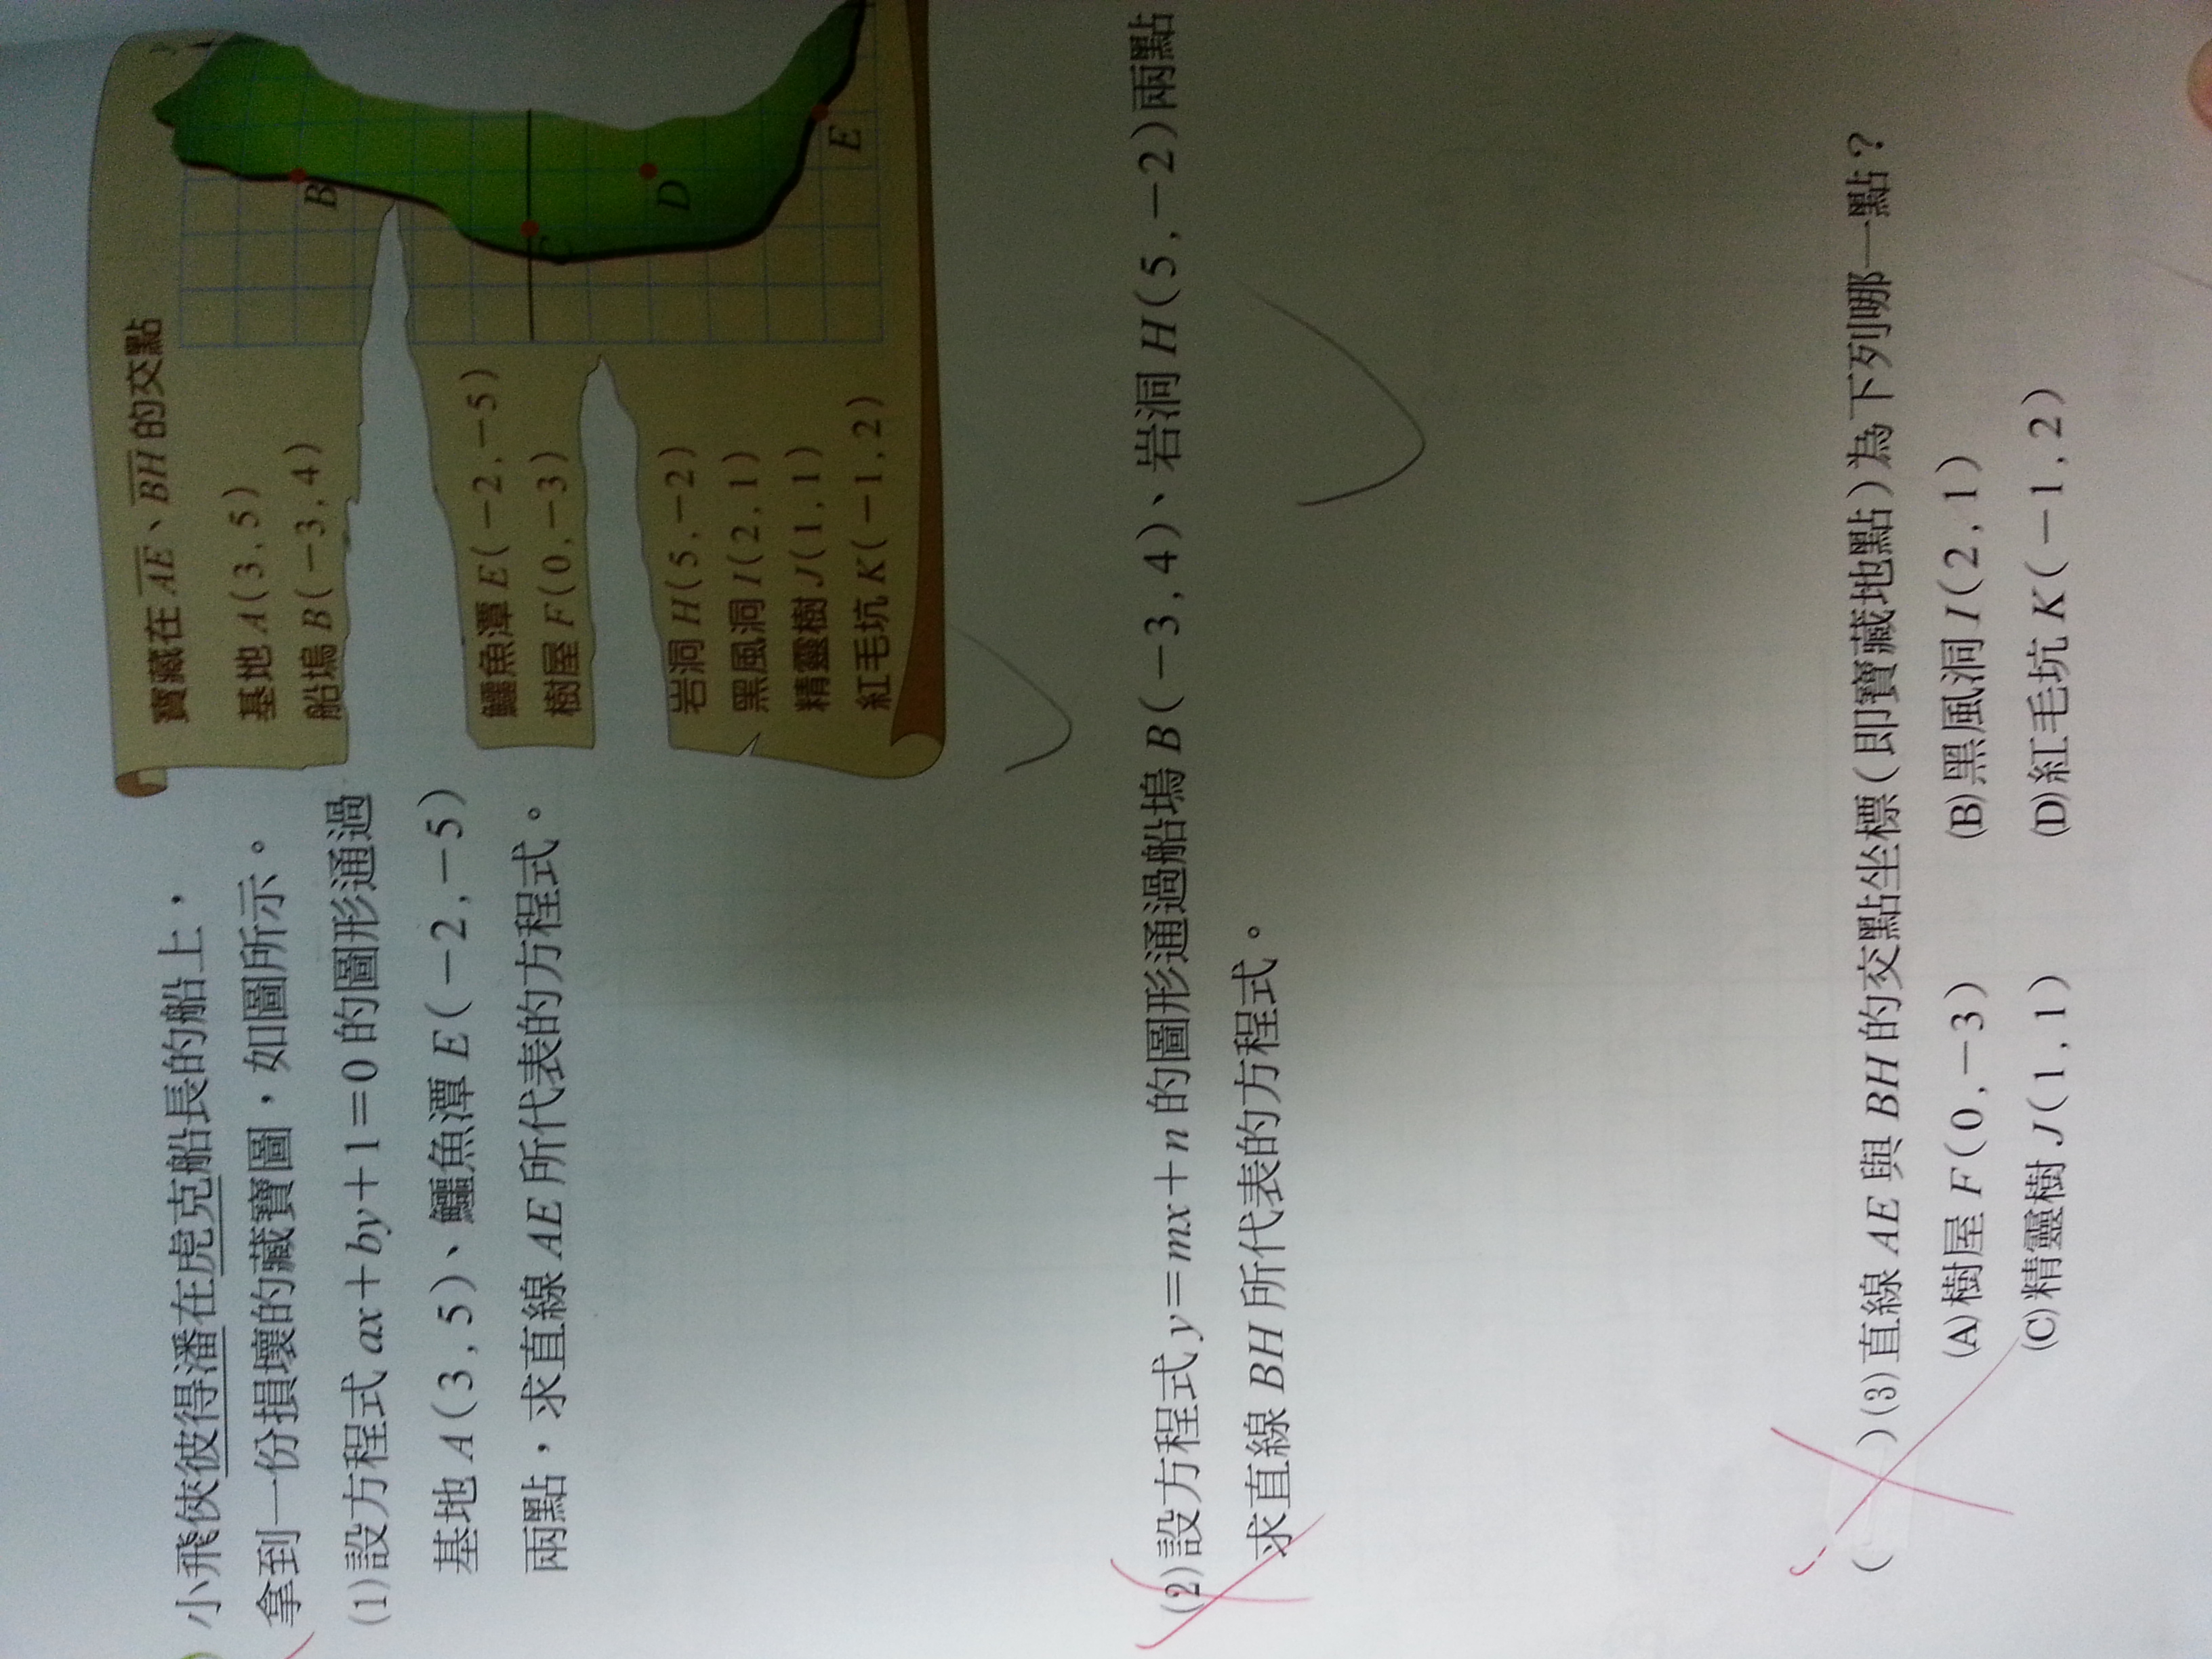 小飛俠彼得潘在虎克船長的船上，
拿到一份損壞的藏寶圖，如圖所示。
(1)設方程式 ax＋by＋1＝0 的圖形通過
基地 A(3,5)、鱷魚潭 E(－2,－5)
兩點，求直線 AE 所代表的方程式。
寶藏在 AE、BH 的交點
基地 A(3,5)
船塢 B(－3,4)
鱷魚潭 E(－2,－5)
樹屋 F(0,－3)
岩洞 H(5,－2)
黑風洞 I(2,1)
精靈樹 J(1,1)
紅毛坑 K(－1,2)
B
D
E
(2)設方程式 y＝mx＋n 的圖形通過船塢 B(－3,4)、岩洞 H(5,－2)兩點
求直線 BH 所代表的方程式。
( )(3)直線 AE 與 BH 的交點坐標(即寶藏地點)為下列哪一點？
(A)樹屋 F(0,－3) (B)黑風洞 I(2,1)
(C)精靈樹 J(1,1) (D)紅毛坑 K(－1,2)